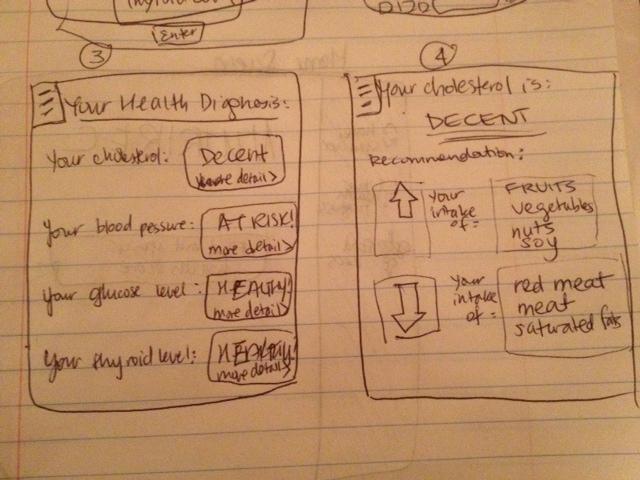 Enter
3
Your Health Dignosis:
Your cholesterol:
Decent
more detail>
Your blood pessure:
AT RISK!
more detail>
Your glucose level:
HEALTHY!
more detail>
Your thyroid level:
HEALTHY!
more detail>
4
Your cholesterol is:
DECENT
Recommendation:
Your
intake
of:
FRUITS
vegetables
nuts
soy
Your
intake
of:
red meat
meat
saturated fats